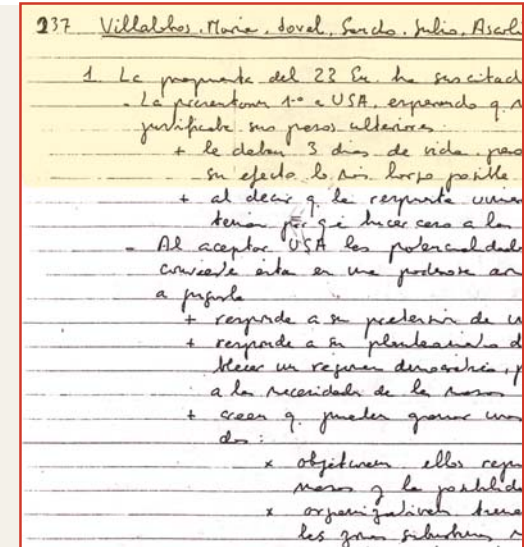 237 Villalobos, María, Joval, Sancho, Julio, Ascoli
1. La propuesta del 23 En. ha suscitad
- La presentaron 1º a USA, esperando q.
justificaba sus pasos ulteriores.
+ le daban 3 días de vida, pero
su efecto lo más largo posible.
+ al decir q. la respuesta
tenían por qé hacer caso a los
- Al aceptar USA las potencialidad
convierte ésta en una poderosa ar
a jugarla
+ responde a su pretensión de
+ responde a su planteamiento d
blecer un régimen democrático, p
a las necesidades de las masas
+ creen q. pueden ganar
do:
x objetivan ellos repr
masas y la posibilid
x organizativan tiene
les